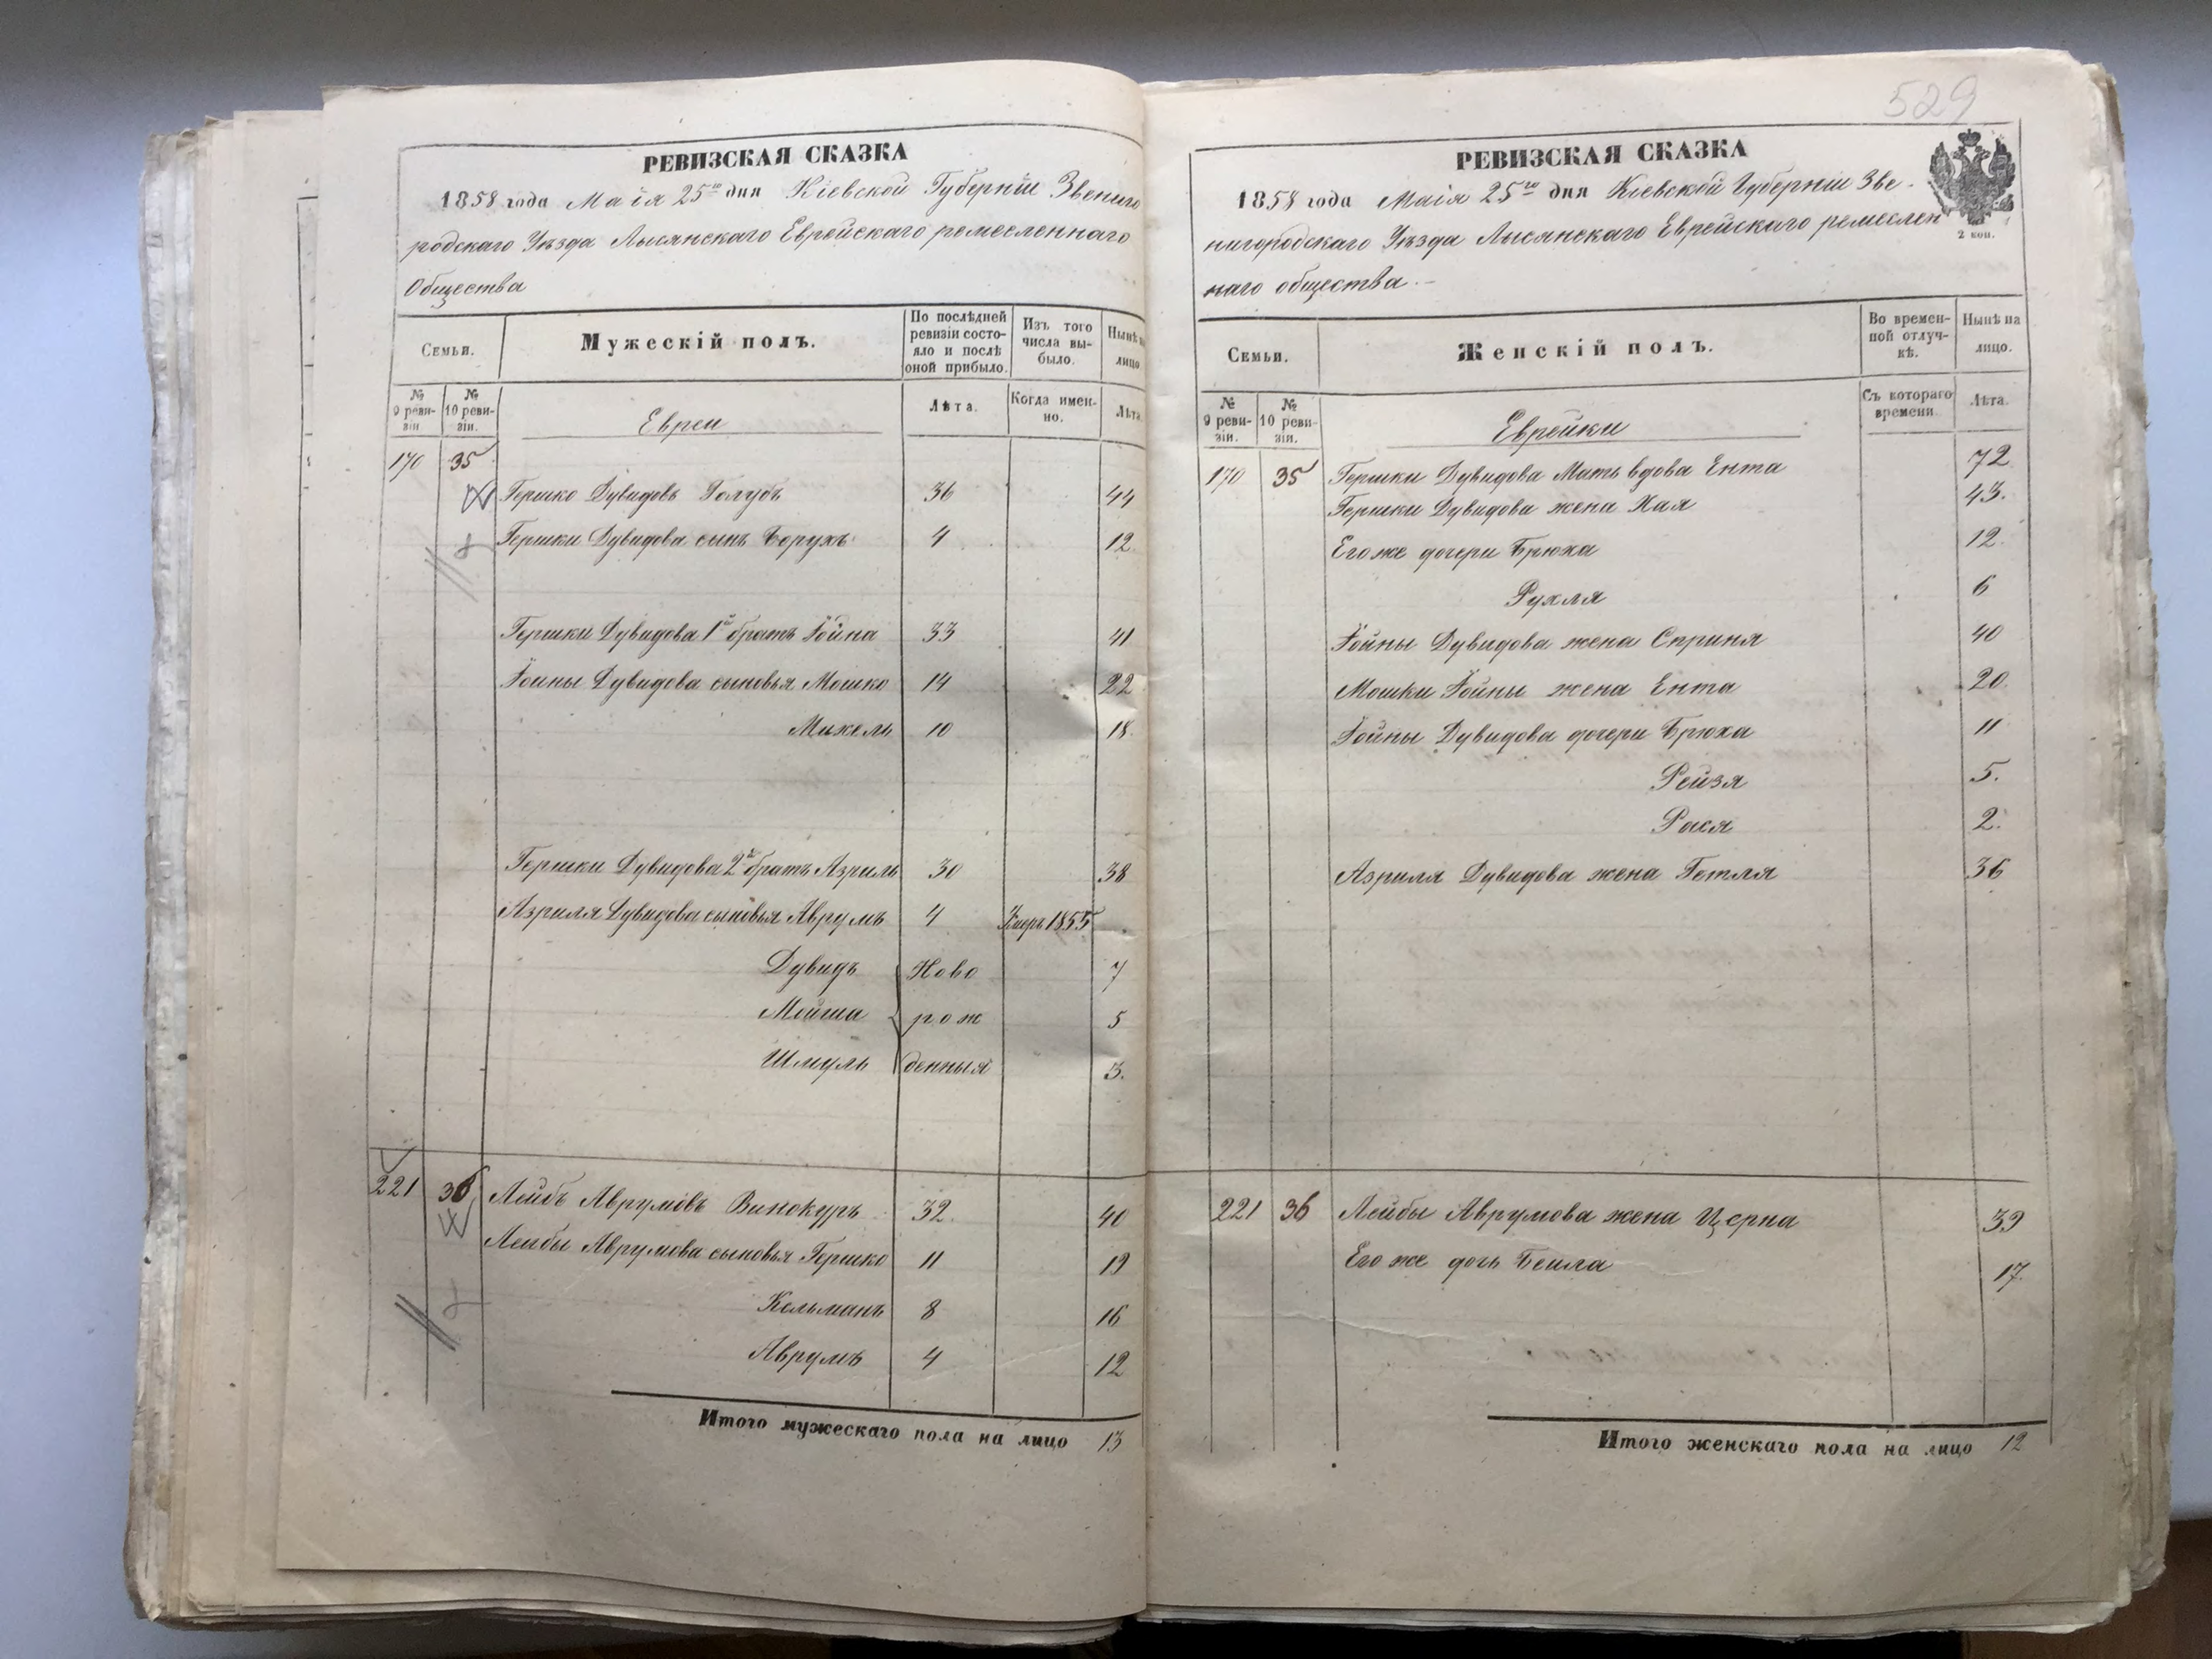 РЕВИЗСКАЯ СКАЗКА
1858 года Маія 25го дня Кіевской Губерніи Звениго
родскаго Уѣзда Лысянскаго Еврейскаго ремесленнаго
Общества
Семьи.
Мужескій полъ.
По послѣдней
ревизіи состо-
яло и послѣ
оной прибыло.
Изъ того
числа вы-
было.
Нынѣ на
лицо
№
9 реви-
зіи
№
10 реви-
зіи.
Евреи
Лѣта.
Когда имен-
но.
Лѣта
170 35
Гершко Дувидовъ Голубъ 36 44
Гершки Дувидова сынъ Борухъ 4 12.
Гершки Дувидова 1й братъ Іойна 33 41
Іойны Дувидова сыновья Мошко 14 22
Михель 10 18.
Гершки Дувидова 2й братъ Азриль 30 38
Азриля Дувидова сыновья Аврумъ 4 Умеръ 1855
Дувидъ Ново 7
Мойша рож 5
Шмуль денныя 3.
221 36 Лейбъ Аврумовъ Винокуръ 32. 40
Лейбы Аврумова сыновья Гершко 11 19
Кельманъ 8 16
Аврумъ 4 12
Итого мужескаго пола на лицо 13
529
РЕВИЗСКАЯ СКАЗКА
1858 года Маія 25го дня Кіевской Губерніи Зве-
нигородскаго Уѣзда Лысянскаго Еврейскаго ремеслен
2 коп.
наго общества.
Семьи.
Женскій полъ.
Во времен-
ной отлуч-
кѣ.
Нынѣ на
лицо.
№
9 реви-
зіи.
№
10 реви-
зіи.
Еврейки
Съ котораго
времени.
Лѣта.
170 35 Гершки Дувидова Мать вдова Ента 72
Гершки Дувидова жена Хая 43.
Его же дочери Брюха 12.
Рухля 6
Іойны Дувидова жена Сприня 40
Мошки Іойны жена Ента 20.
Іойны Дувидова дочери Брюха 11
Рейзя 5.
Рася 2.
Азриля Дувидова жена Гетля 36
221 36 Лейбы Аврумова жена Церна 39
Его же дочь Бейла 17.
Итого женскаго пола на лицо 12